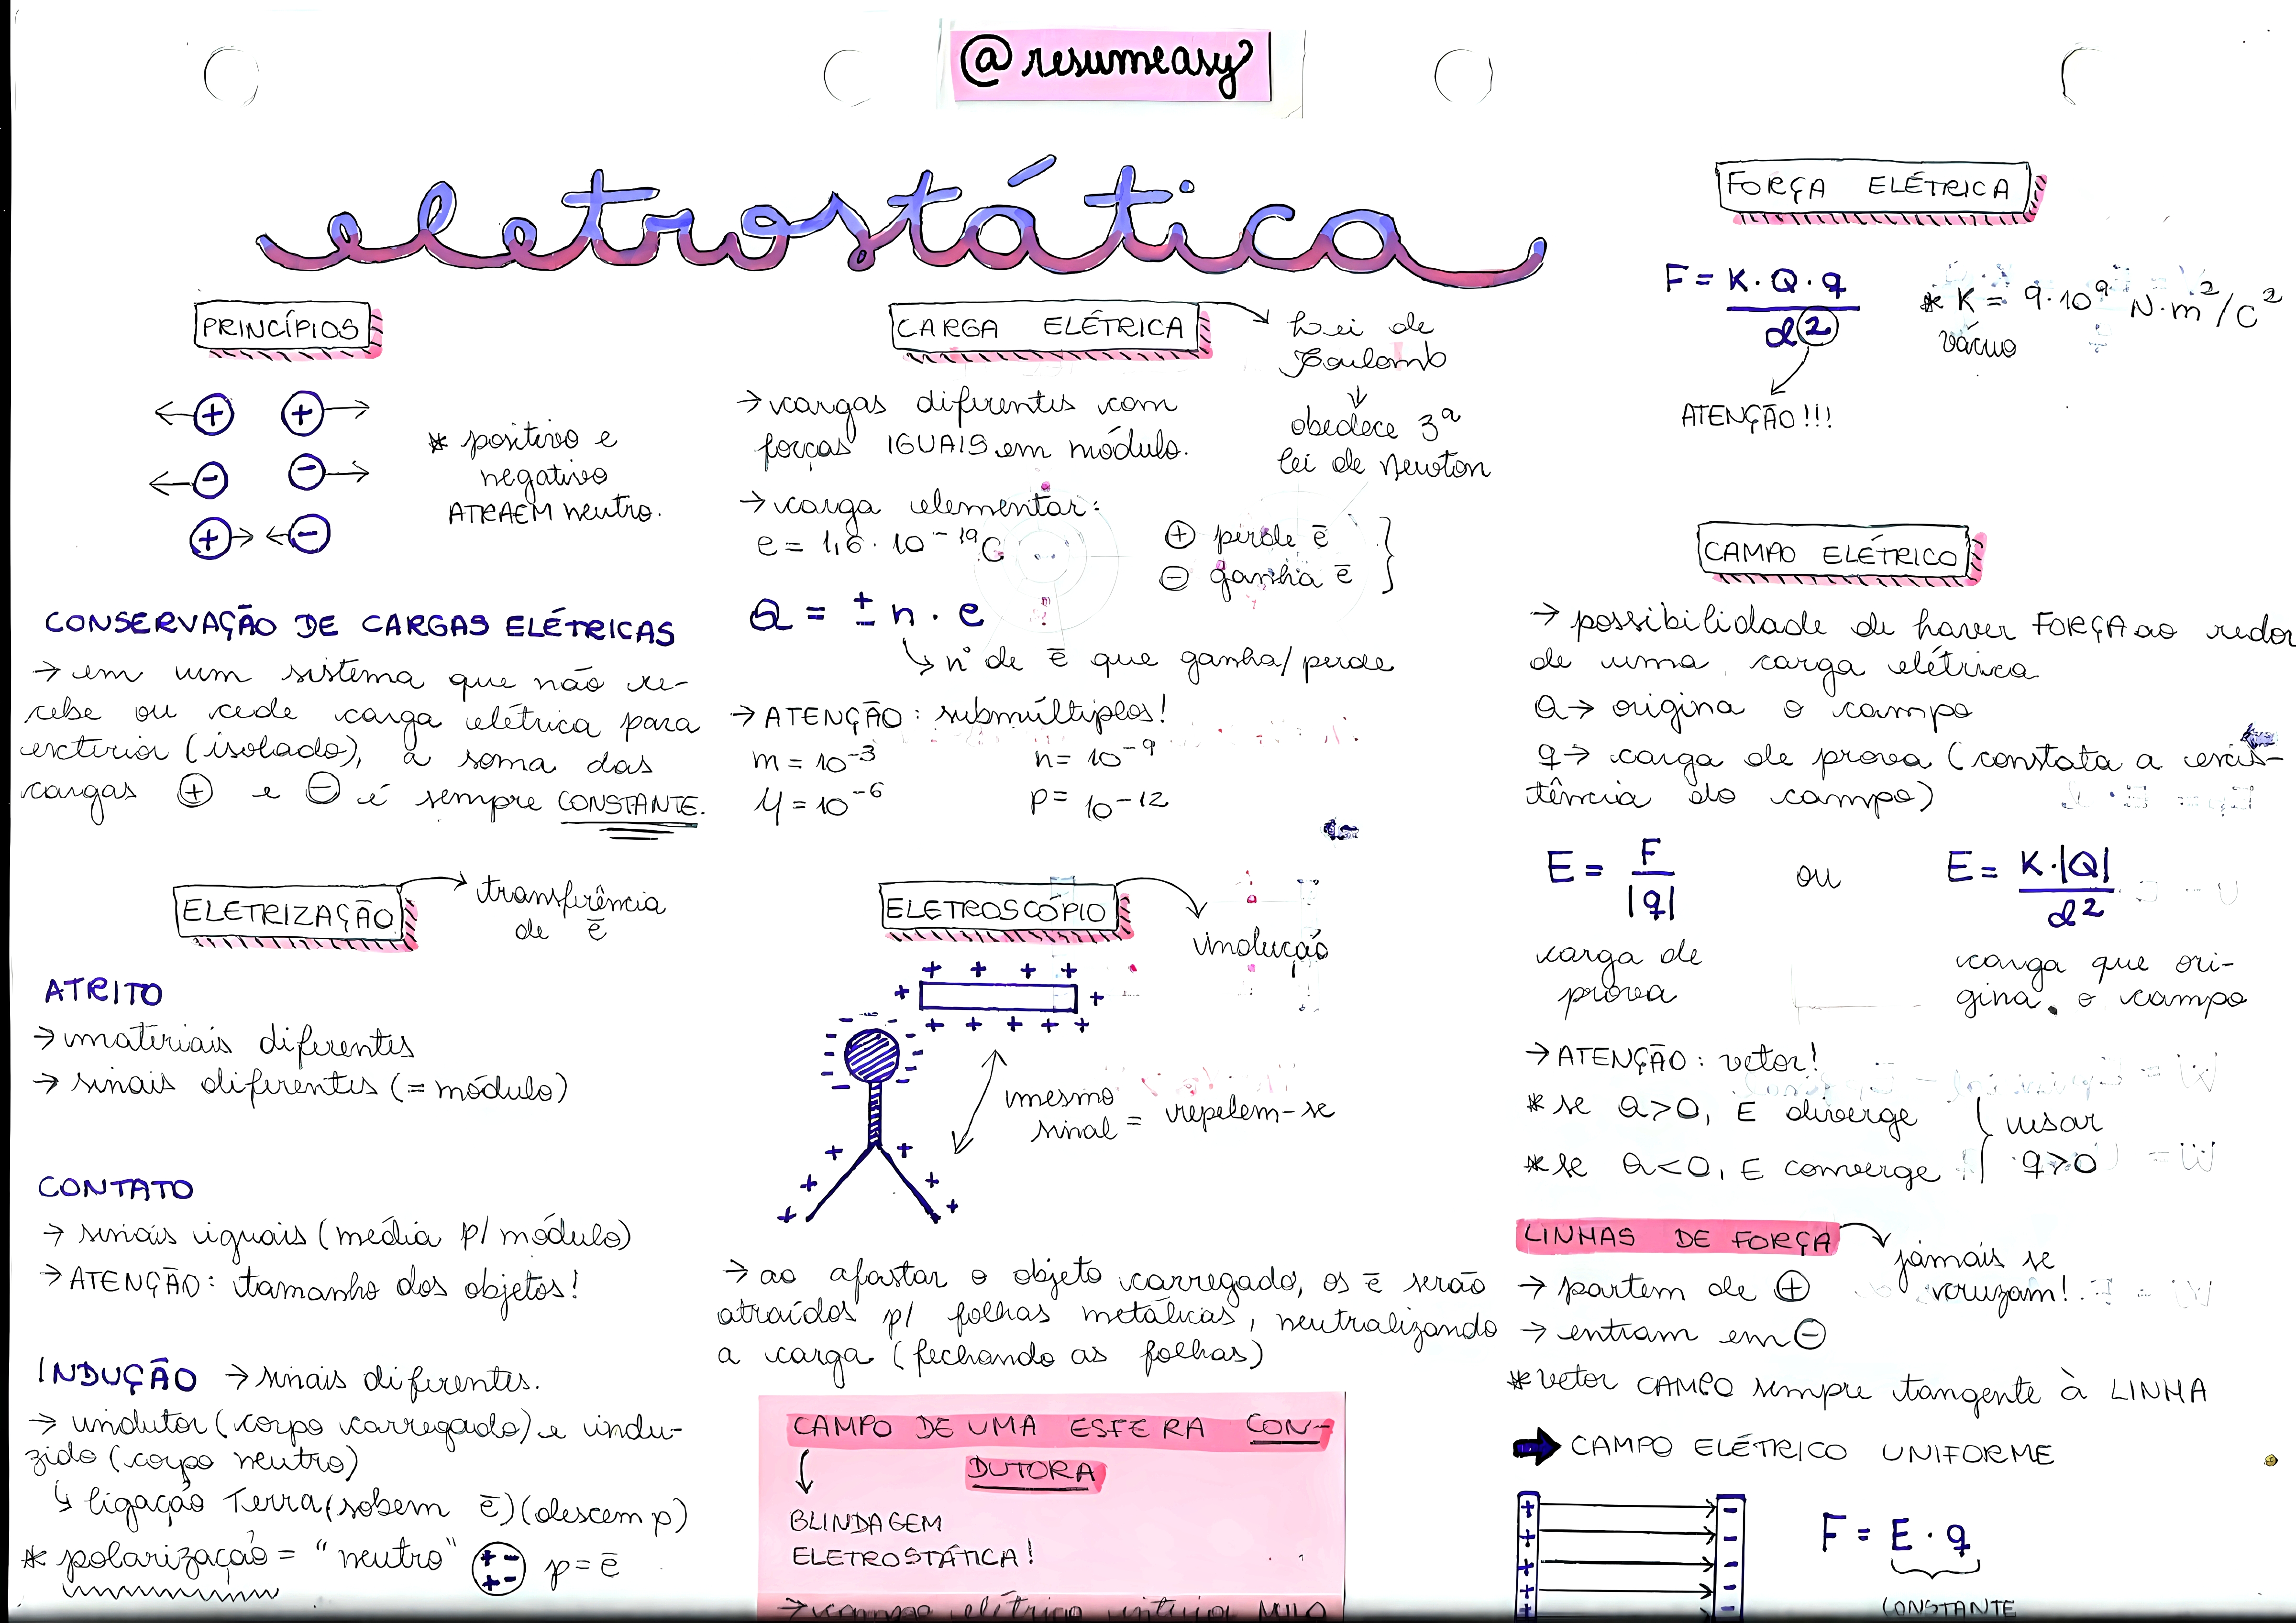 @resumeasy
eletrostática
PRINCÍPIOS
* positivo e
negativo
ATRAEM neutro.
CONSERVAÇÃO DE CARGAS ELÉTRICAS
→ em um sistema que não re-
cebe ou cede carga elétrica para
exterior (isolado), a soma das
cargas ⊕ e ⊖ é sempre CONSTANTE.
ELETRIZAÇÃO
transferência
de ē
ATRITO
→ materiais diferentes
→ sinais diferentes (= módulo)
CONTATO
→ sinais iguais (média p/ módulo)
→ ATENÇÃO: tamanho dos objetos!
INDUÇÃO → sinais diferentes.
→ indutor (corpo carregado) e indu-
zido (corpo neutro)
↳ ligação Terra (sobem ē) (descem p)
* polarização = "neutro" p = ē
CARGA ELÉTRICA
Lei de
Coulomb
↓
obedece 3ª
lei de Newton
→ cargas diferentes com
forças IGUAIS em módulo.
→ carga elementar:
e = 1,6 · 10⁻¹⁹C
⊕ perde ē
⊖ ganha ē
Q = ± n · e
↳ n° de ē que ganha/perde
→ ATENÇÃO: submúltiplos!
m = 10⁻³ n = 10⁻⁹
μ = 10⁻⁶ p = 10⁻¹²
ELETROSCÓPIO
indução
mesmo
sinal = repelem-se
→ ao afastar o objeto carregado, os ē serão
atraídos p/ folhas metálicas, neutralizando
a carga (fechando as folhas)
CAMPO DE UMA ESFERA CON-
DUTORA
↓
BLINDAGEM
ELETROSTÁTICA!
→ campo elétrico interior NULO
FORÇA ELÉTRICA
F = K · Q · q / d²
* K = 9 · 10⁹ N·m²/C²
vácuo
ATENÇÃO!!!
CAMPO ELÉTRICO
→ possibilidade de haver FORÇA ao redor
de uma carga elétrica
Q → origina o campo
q → carga de prova (constata a exis-
tência do campo)
E = F / |q| ou E = K·|Q| / d²
carga de
prova
carga que ori-
gina o campo
→ ATENÇÃO: vetor!
* se Q > 0, E diverge
* se Q < 0, E converge
usar
q > 0
LINHAS DE FORÇA
jamais se
cruzam!
→ partem de ⊕
→ entram em ⊖
* vetor CAMPO sempre tangente à LINHA
➡ CAMPO ELÉTRICO UNIFORME
F = E · q
CONSTANTE